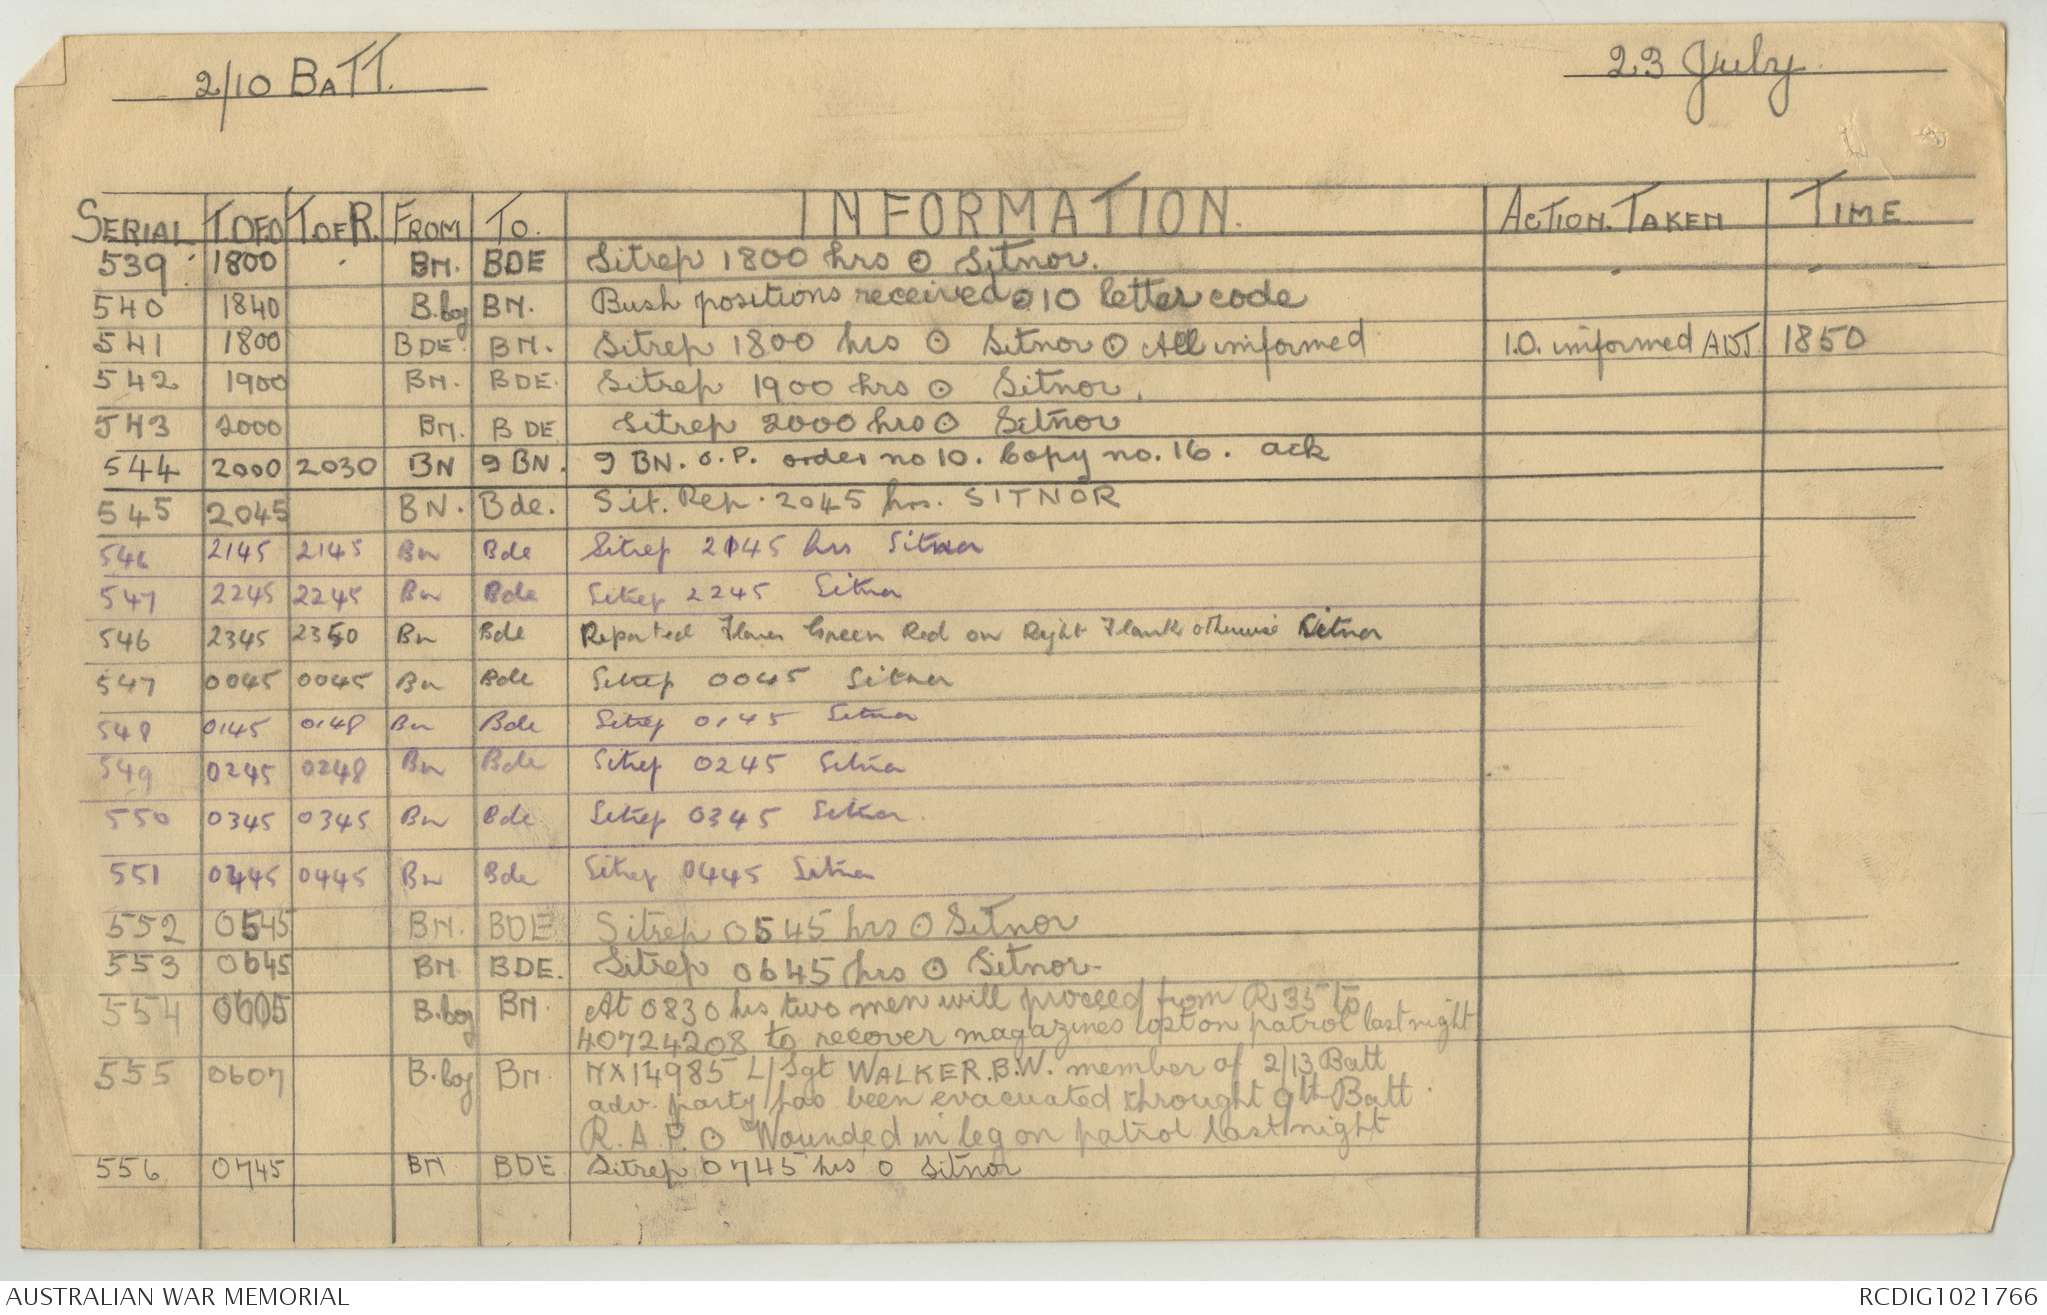 2/10 BATT.
23 July
SERIAL T.OF.O T.OF.R. FROM TO. INFORMATION. ACTION. TAKEN TIME
539 1800 BN. BDE Sitrep 1800 hrs ⊙ Sitnor.
540 1840 B.Coy BN. Bush positions received ⊙ 10 letter code
541 1800 BDE. BN. Sitrep 1800 hrs ⊙ Sitnor ⊙ All informed I.O. informed ADJ. 1850
542 1900 BN. BDE. Sitrep 1900 hrs ⊙ Sitnor.
543 2000 BN. BDE Sitrep 2000 hrs ⊙ Sitnor
544 2000 2030 BN 9 BN. 9 BN. O.P. order no 10. Copy no. 16. ack
545 2045 BN. Bde. Sit. Rep. 2045 hrs. SITNOR
546 2145 2145 Bn Bde Sitrep 2145 hrs Sitnor
547 2245 2245 Bn Bde Sitrep 2245 Sitnor
546 2345 2350 Bn Bde Reported Flares Green Red on Right Flank otherwise Sitnor
547 0045 0045 Bn Bde Sitrep 0045 Sitnor
548 0145 0148 Bn Bde Sitrep 0145 Sitnor
549 0245 0248 Bn Bde Sitrep 0245 Sitnor
550 0345 0345 Bn Bde Sitrep 0345 Sitnor
551 0445 0445 Bn Bde Sitrep 0445 Sitnor
552 0545 BN. BDE Sitrep 0545 hrs ⊙ Sitnor
553 0645 BN BDE. Sitrep 0645 hrs ⊙ Sitnor
554 0605 B.Coy BN. At 0830 hrs two men will proceed from R35 to
40724208 to recover magazines lost on patrol last night
555 0607 B.Coy BN. NX14985 L/Sgt WALKER.B.W. member of 2/13 Batt
adv. party has been evacuated throught 9th Batt
R.A.P. ⊙ Wounded in leg on patrol last night
556 0745 BN BDE Sitrep 0745 hrs ⊙ Sitnor
AUSTRALIAN WAR MEMORIAL
RCDIG1021766